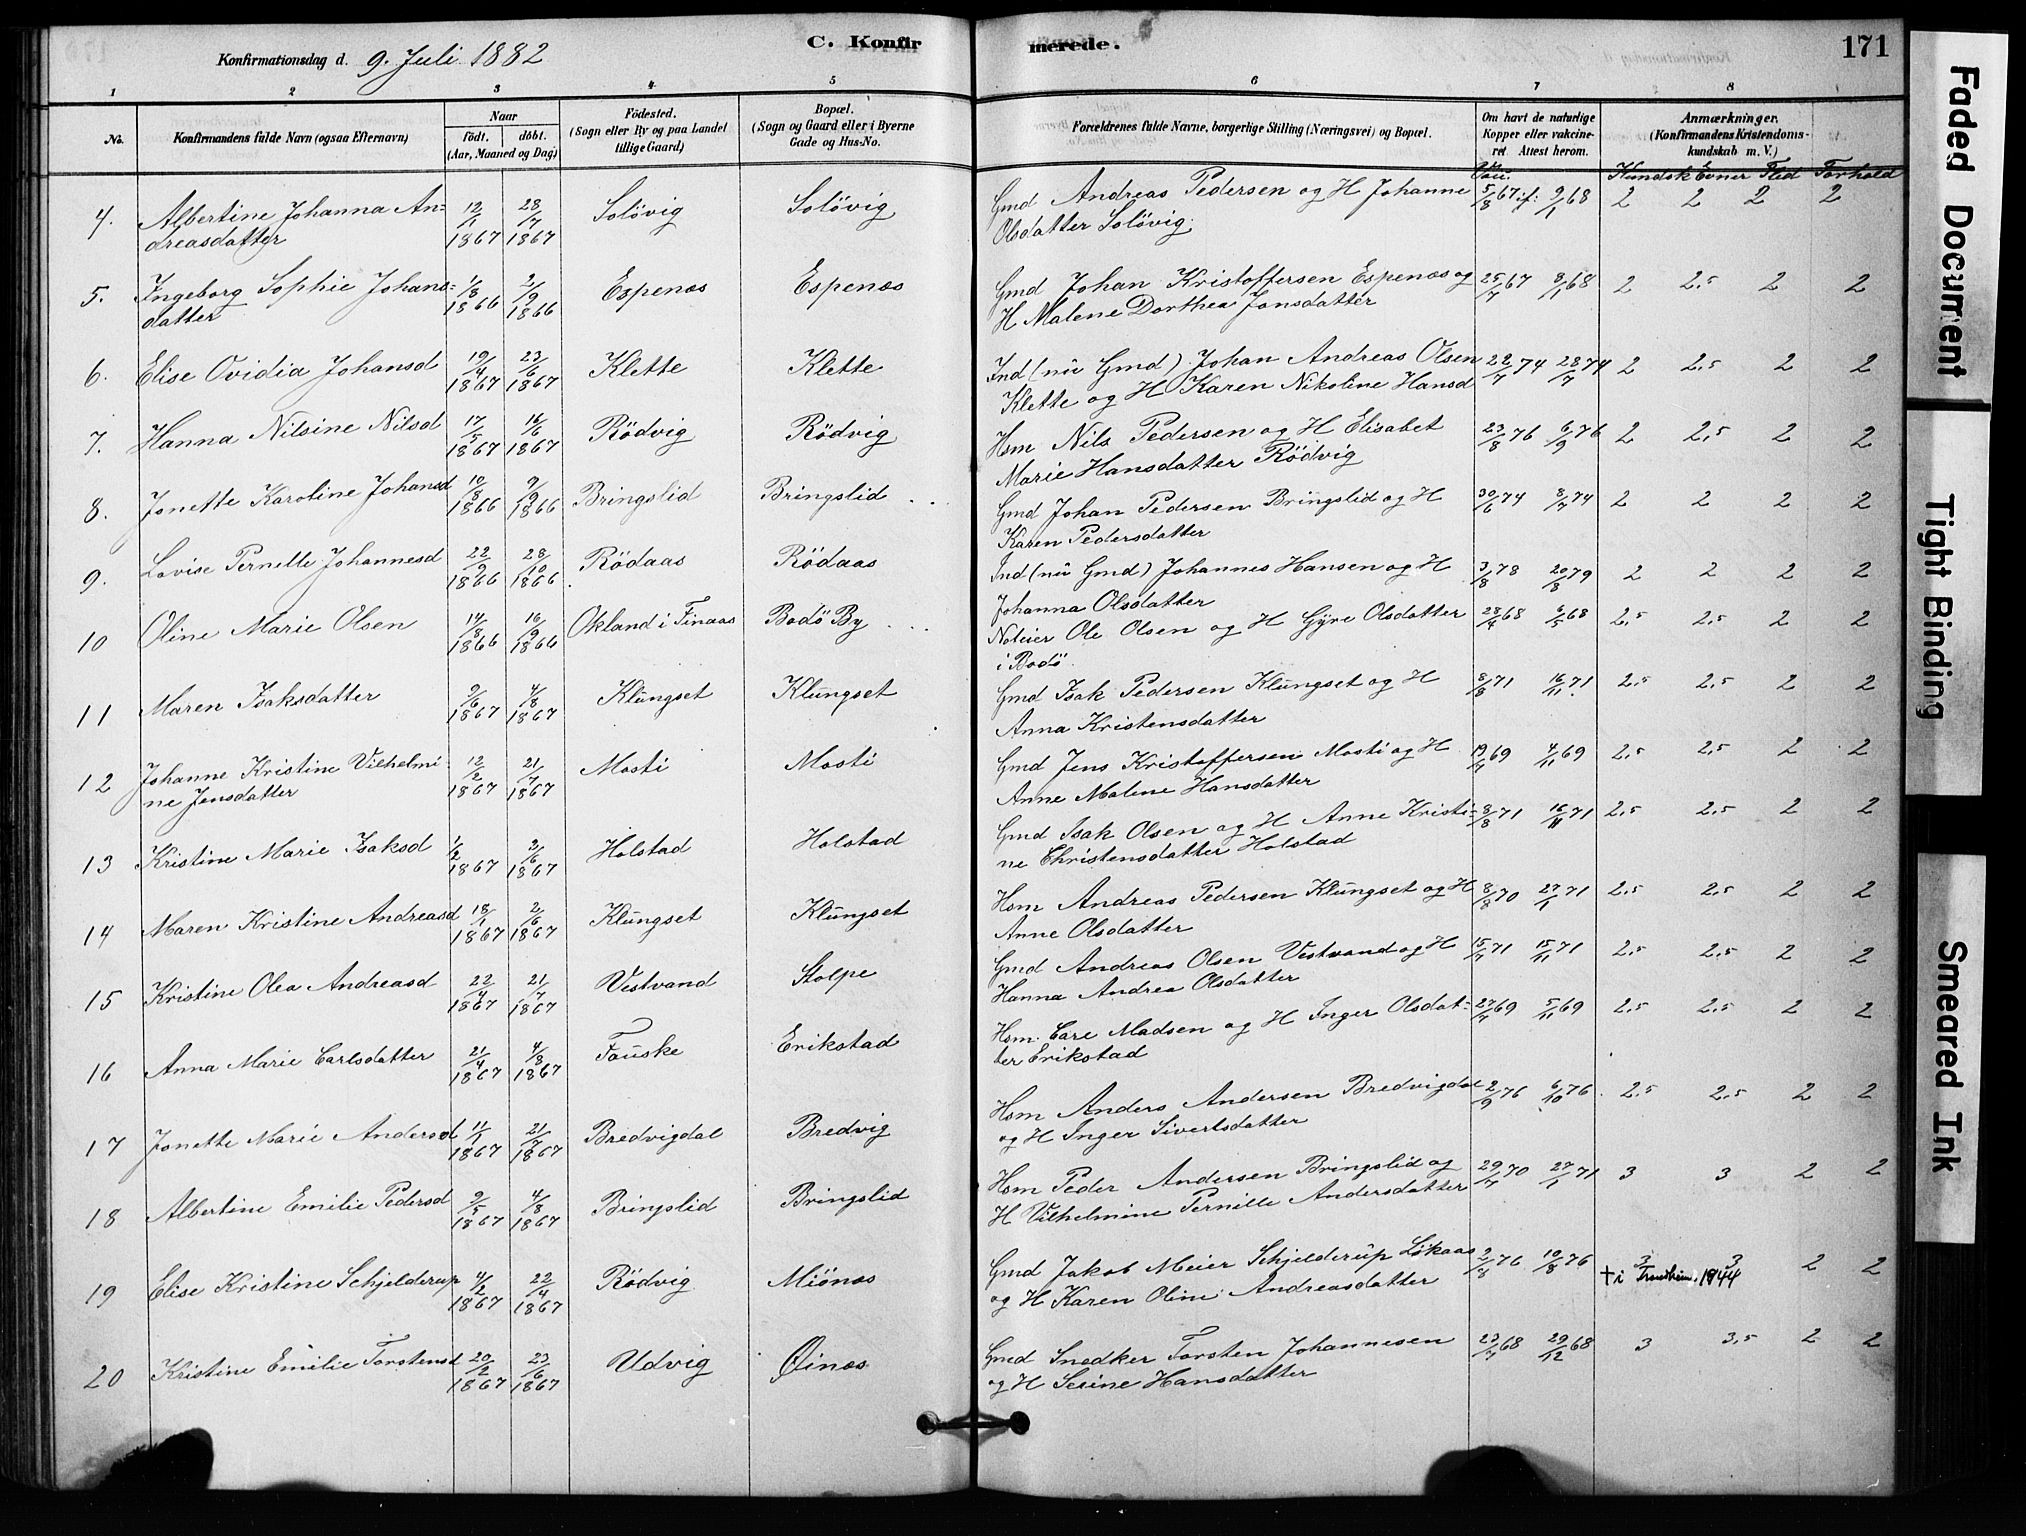 Konfirmationsdag d. 9. Juli 1882 C. Konfirmerede. 171
1 2 3 4 5 6 7 8
No. Konfirmandens fulde Navn (ogsaa Efternavn) Naar født. døbt. (Aar, Maaned og Dag) Födested. (Sogn eller By og paa Landet tillige Gaard) Bopæl. (Sogn og Gaard eller i Byerne Gade og Hus-No. Forældrenes fulde Navne, borgerlige Stilling (Næringsvei) og Bopæl. Om havt de naturlige Kopper eller vakcineret Attest herom. Anmærkninger. (Konfirmandens Kristendomskundskab m. V.)
Kundsk Evner Flid Forhold
4. Albertine Johanna An- 12/1 28/7 Solövig Solövig Gmd Andreas Pedersen og H Johanne 5/8 67 if: 9/1 68 2 2 2 2
dreasdatter 1867 1867 Olsdatter Solövig.
5. Ingeborg Sophie Johans- 1/8 2/9 Espenæs Espenæs Gmd Johan Kristoffersen Espenæs og 25/7 67 8/1 68 2 2,5 2 2
datter 1866 1866 H Malene Dorthea Jonsdatter
6. Elise Ovidia Johansd 19/4 23/6 Klette Klette Ind (nü Gmd) Johan Andreas Olsen 22/7 74 28/7 74 2 2,5 2 2
1867 1867 Klette og H Karen Nikoline Hansd
7. Hanna Nilsine Nilsd 17/5 16/6 Rödvig Rödvig Hsm Nils Pedersen og H Elisabet 23/8 76 6/9 76 2 2,5 2 2
1867 1867 Marie Hansdatter Rödvig
8. Jonette Karoline Johansd 10/8 9/9 Bringslid Bringslid Gmd Johan Pedersen Bringslid og H 30/6 74 8/7 74 2 2 2 2
1866 1866 Karen Pedersdatter
9. Lovise Pernille Johannesd 22/9 28/10 Rödaas Rödaas Ind (nü Gmd) Johannes Hansen og H 3/8 78 20/8 79 2 2 2 2
1866 1866 Johanna Olsdatter
10 Oline Marie Olsen 14/8 16/9 Okland i Finaas Bodö By Noteier Ole Olsen og H Gÿre Olsdatter 28/4 68 6/5 68 2,5 2,5 2 2
1866 1866 i Bodö.
11 Maren Isaksdatter 9/6 4/8 Klüngset Klüngset Gmd Isak Pedersen Klüngset og H 8/8 71 16/11 71 2,5 2,5 2 2
1867 1867 Anna Kristensdatter
12 Johanne Kristine Vilhelmi- 12/2 21/7 Mosti Mosti Gmd Jens Kristoffersen Mosti og H 19/7 69 4/11 69 2,5 2,5 2 2
ne Jensdatter 1867 1867 Anne Malene Hansdatter
13 Kristine Marie Isaksd 1/2 2/6 Holstad Holstad Gmd Isak Olsen og H Anne Kristi- 8/8 71 16/11 71 2,5 2,5 2 2
1867 1867 ne Christensdatter Holstad
14 Maren Kristine Andreasd 18/1 2/6 Klüngset Klüngset Hsm Andreas Pedersen Klüngset og H 8/8 70 27/1 71 2,5 2,5 2 2
1867 1867 Anne Olsdatter
15 Kristine Olea Andreasd 22/4 21/7 Vestvand Stolpe Gmd Andreas Olsen Vestvand og H 15/7 71 15/11 71 2,5 2,5 2 2
1867 1867 Hanna Andrea Olsdatter
16 Anna Marie Carlsdatter 21/4 4/8 Fauske Erikstad Hsm. Carl Madsen og H Inger Olsdat- 27/7 69 5/11 69 2,5 2,5 2 2
1867 1867 ter Erikstad
17 Jonette Marie Andersd 11/1 21/7 Bredvigdal Bredvig Hsm Anders Andersen Bredvigdal 2/9 76 6/10 76 2,5 2,5 2 2
1867 1867 og H Inger Sivertsdatter
18 Albertine Emilie Pedersd 9/5 4/8 Bringslid Bringslid Hsm Peder Andersen Bringslid og 29/7 70 27/1 71 3 3 2 2
1867 1867 H Vilhelmine Pernille Andersdatter
19 Elise Kristine Schjelderup 4/2 22/4 Rödvig Miönæs Gmd Jakob Meier Schjelderup Løkaas 2/8 76 10/8 76 3 3 2 2
1867 1867 og H Karen Oline Andreasdatter † i Trondheim. 1944
20 Kristine Emilie Torstensd 20/2 23/6 Udvig Øinæs Gmd Snedker Torsten Johannesen 23/7 68 29/12 68 3 3,5 2 2
1867 1867 og H Serine Hansdatter
Faded Document
Tight Binding
Smeared Ink